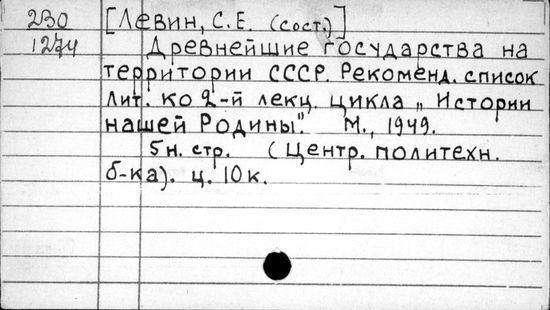 230 [Левин, С.Е. (сост.)]
1274 Древнейшие государства на
территории СССР. Рекоменд. список
лит. ко 2-й лекц. цикла „Истории
нашей Родины". М., 1949.
5н. стр. (Центр. политехн.
б-ка). ц. 10к.